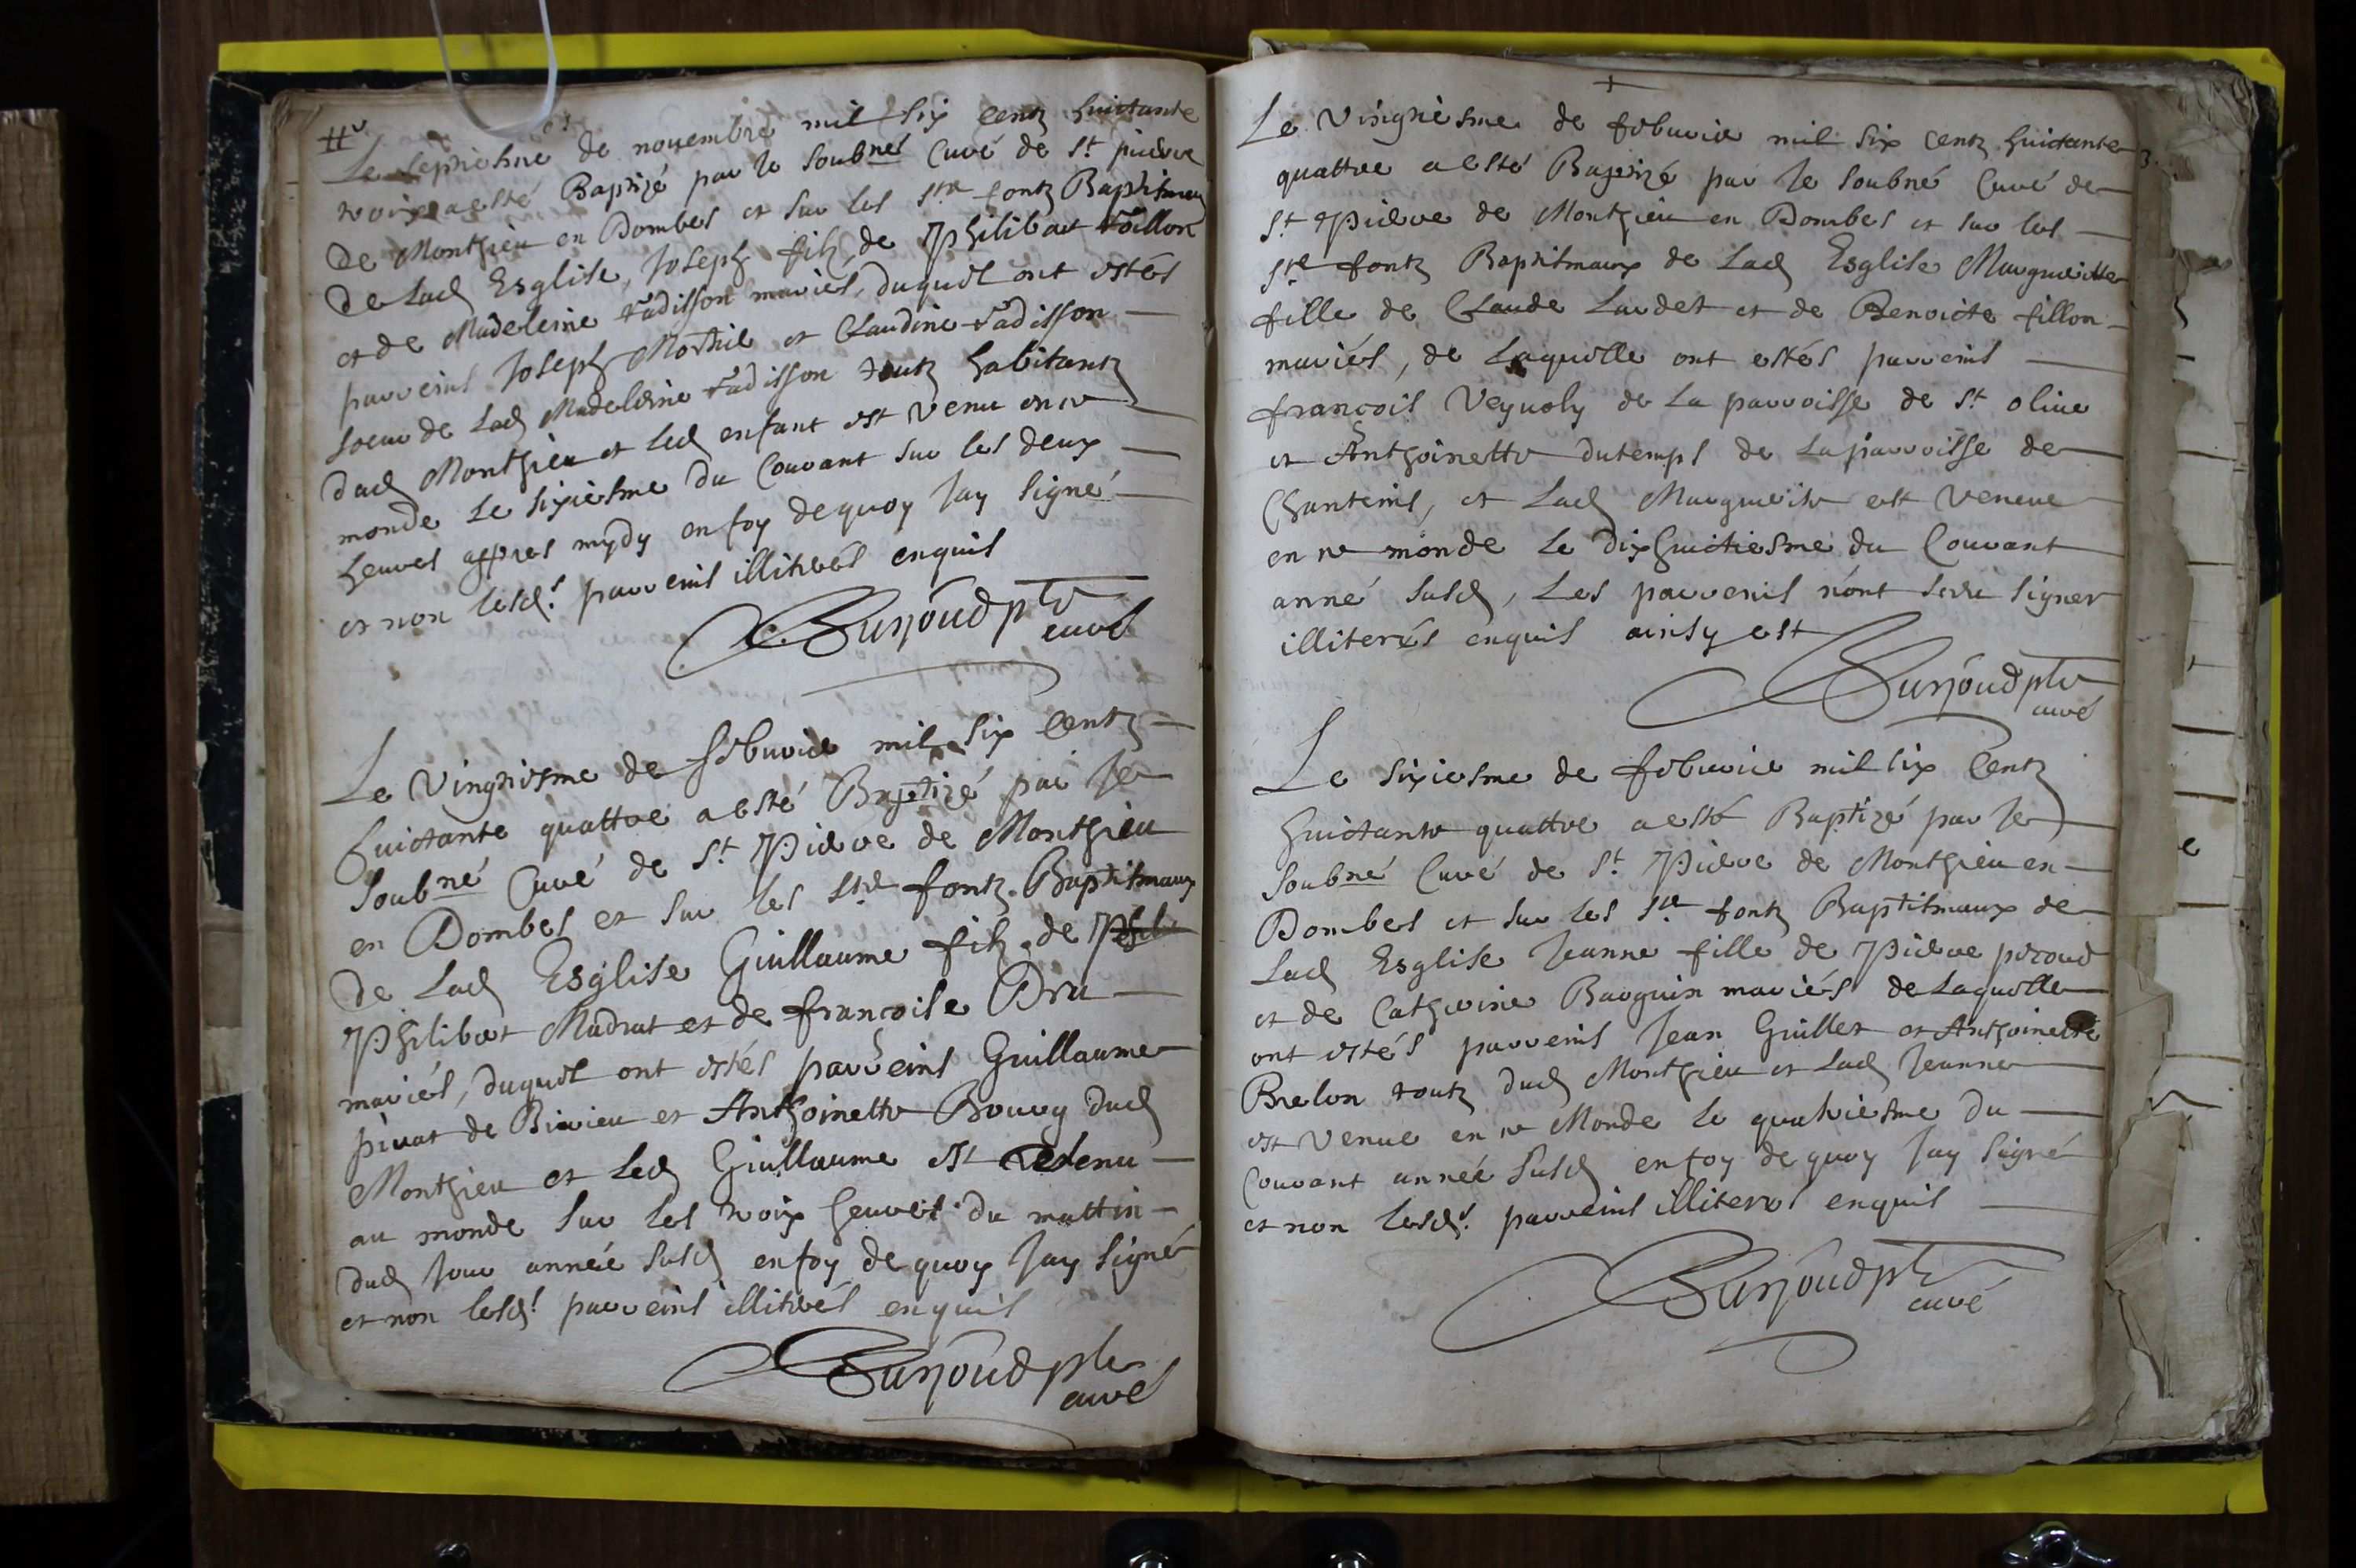 Le septiesme de novembre mil six centz huictante
trois a esté Baptizé par je soubné Curé de St pierre
de Monthieu en Dombes et sur les stz fontz Baptismaux
de lad Esglise, Joseph filz de Philibert foillon
et de Madeleine radisson mariés, duquel ont estés
parreins Joseph Mortil et Claudine radisson
soeur de lad Madeleine radisson toutz habitantz
dud Monthieu et led enfant est venu en ce
monde le sixiesme du Courant sur les deux
heures appres mydy en foy de quoy jay signé
et non lesds parreins illiterés enquis
Surjoud ptre
curé
Le vingtiesme de febvrier mil six centz
huictante quattre a esté Baptizé par je
soubné Curé de St Pierre de Monthieu
en Dombes et sur les stz fontz Baptismaux
de lad Esglise Guillaume filz de
Philibert Madrat et de françoise Dru
mariés, duquel ont estés parreins Guillaume
pivat de Birieu et Anthoinette Bouvy dud
Monthieu et led Guillaume est venu
au monde sur les troix heures du mattin
dud jour année susd en foy de quoy jay signé
et non lesds parreins illiterés enquis
Surjoud ptre
curé
Le vingtiesme de febvrier mil six centz huictante
quattre a esté Baptizé par je soubné Curé de
St Pierre de Monthieu en Dombes et sur les
stz fontz Baptismaux de lad Esglise Margueritte
fille de Claude Lardet et de Benoicte fillon
mariés, de laquelle ont estés parreins
françois Veyroly de la parroisse de St olive
et Anthoinette dutemps de la parroisse de
Chanteins, et lad Marguerite est veneue
en ce monde le dixhuictiesme du Courant
anné susd, les parreins n'ont sceu signer
illiterés enquis ainsy est
Surjoud ptre
curé
Le sixiesme de febvrier mil six Centz
huictante quattre a esté Baptizé par je
soubné Curé de St Pierre de Monthieu en
Dombes et sur les stz fontz Baptismaux de
lad Esglise Jeanne fille de Pierre peroud
et de Catherine Barguin mariés de laquelle
ont estés parreins Jean Guillet et Anthoinette
Brelon toutz dud Monthieu et lad Jeanne
est venue en ce Monde le quatriesme du
Courant année susd en foy de quoy jay signé
et non lesds parreins illiterés enquis
Surjoud ptre
curé